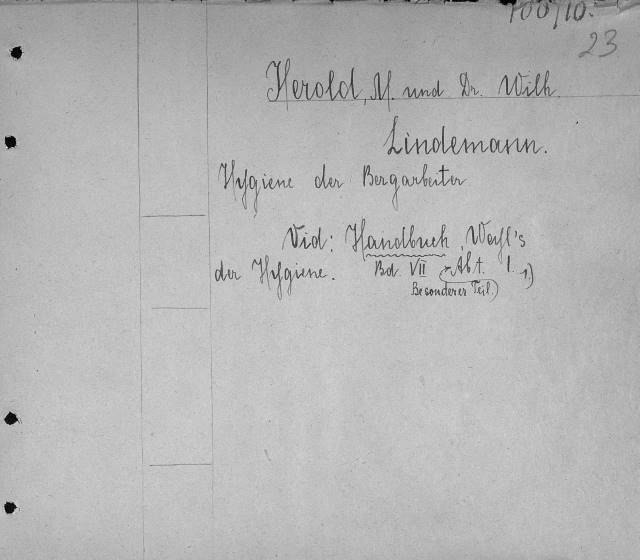 100/10.
23
Herold, M. und Dr. Wilh.
Lindemann.
Hygiene der Bergarbeiter
Vid: Handbuch, Weyl's
der Hygiene. Bd. VII Abt. 1. 1)
Besonderer Teil.)